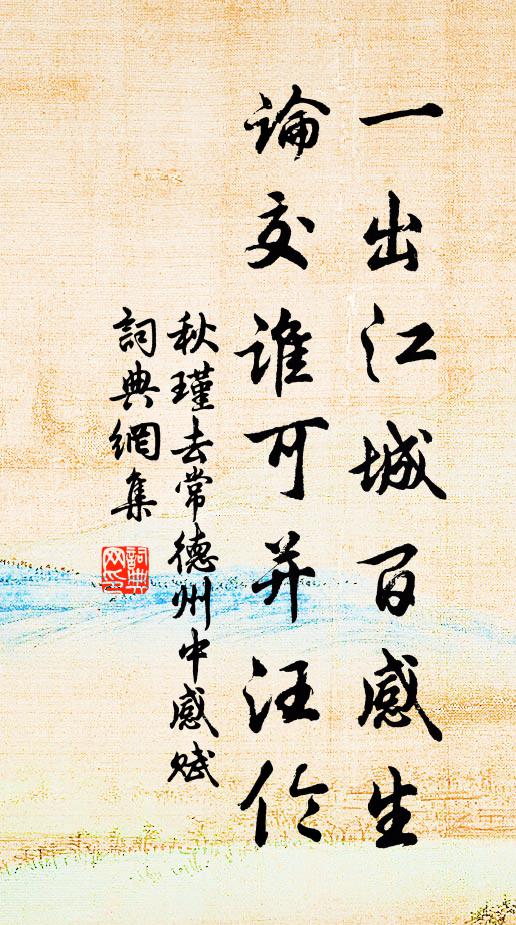 一出江城百感生
論交誰可并汪伦
秋瑾去常德州中感赋
詞典網集
詞典网印